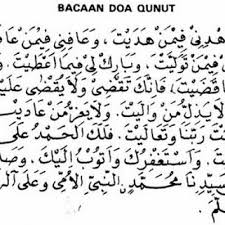 BACAAN DOA QUNUT
هْدِنِيْ فِيْمَنْ هَدَيْتَ ، وَعَافِنِيْ فِيْمَنْ عَا
فِيْمَنْ تَوَلَّيْتَ . وَبَارِكْ لِيْ فِيْمَا أَعْطَيْتَ
قَضَيْتَ . فَاِنَّكَ تَقْضِيْ وَلَا يُقْضٰى عَلَيْ
لَا يَذِلُّ مَنْ وَّالَيْتَ . وَلَا يَعِزُّ مَنْ عَادَيْ
تَ رَبَّنَا وَتَعَالَيْتَ . فَلَكَ الْحَمْدُ عَلٰى
تَ . وَاَسْتَغْفِرُكَ وَاَتُوْبُ اِلَيْكَ . وَصَلَّ
سَيِّدِنَا مُحَمَّدٍ النَّبِيِّ الْاُمِّيِّ وَعَلٰى اٰلِ
لَّمَ .